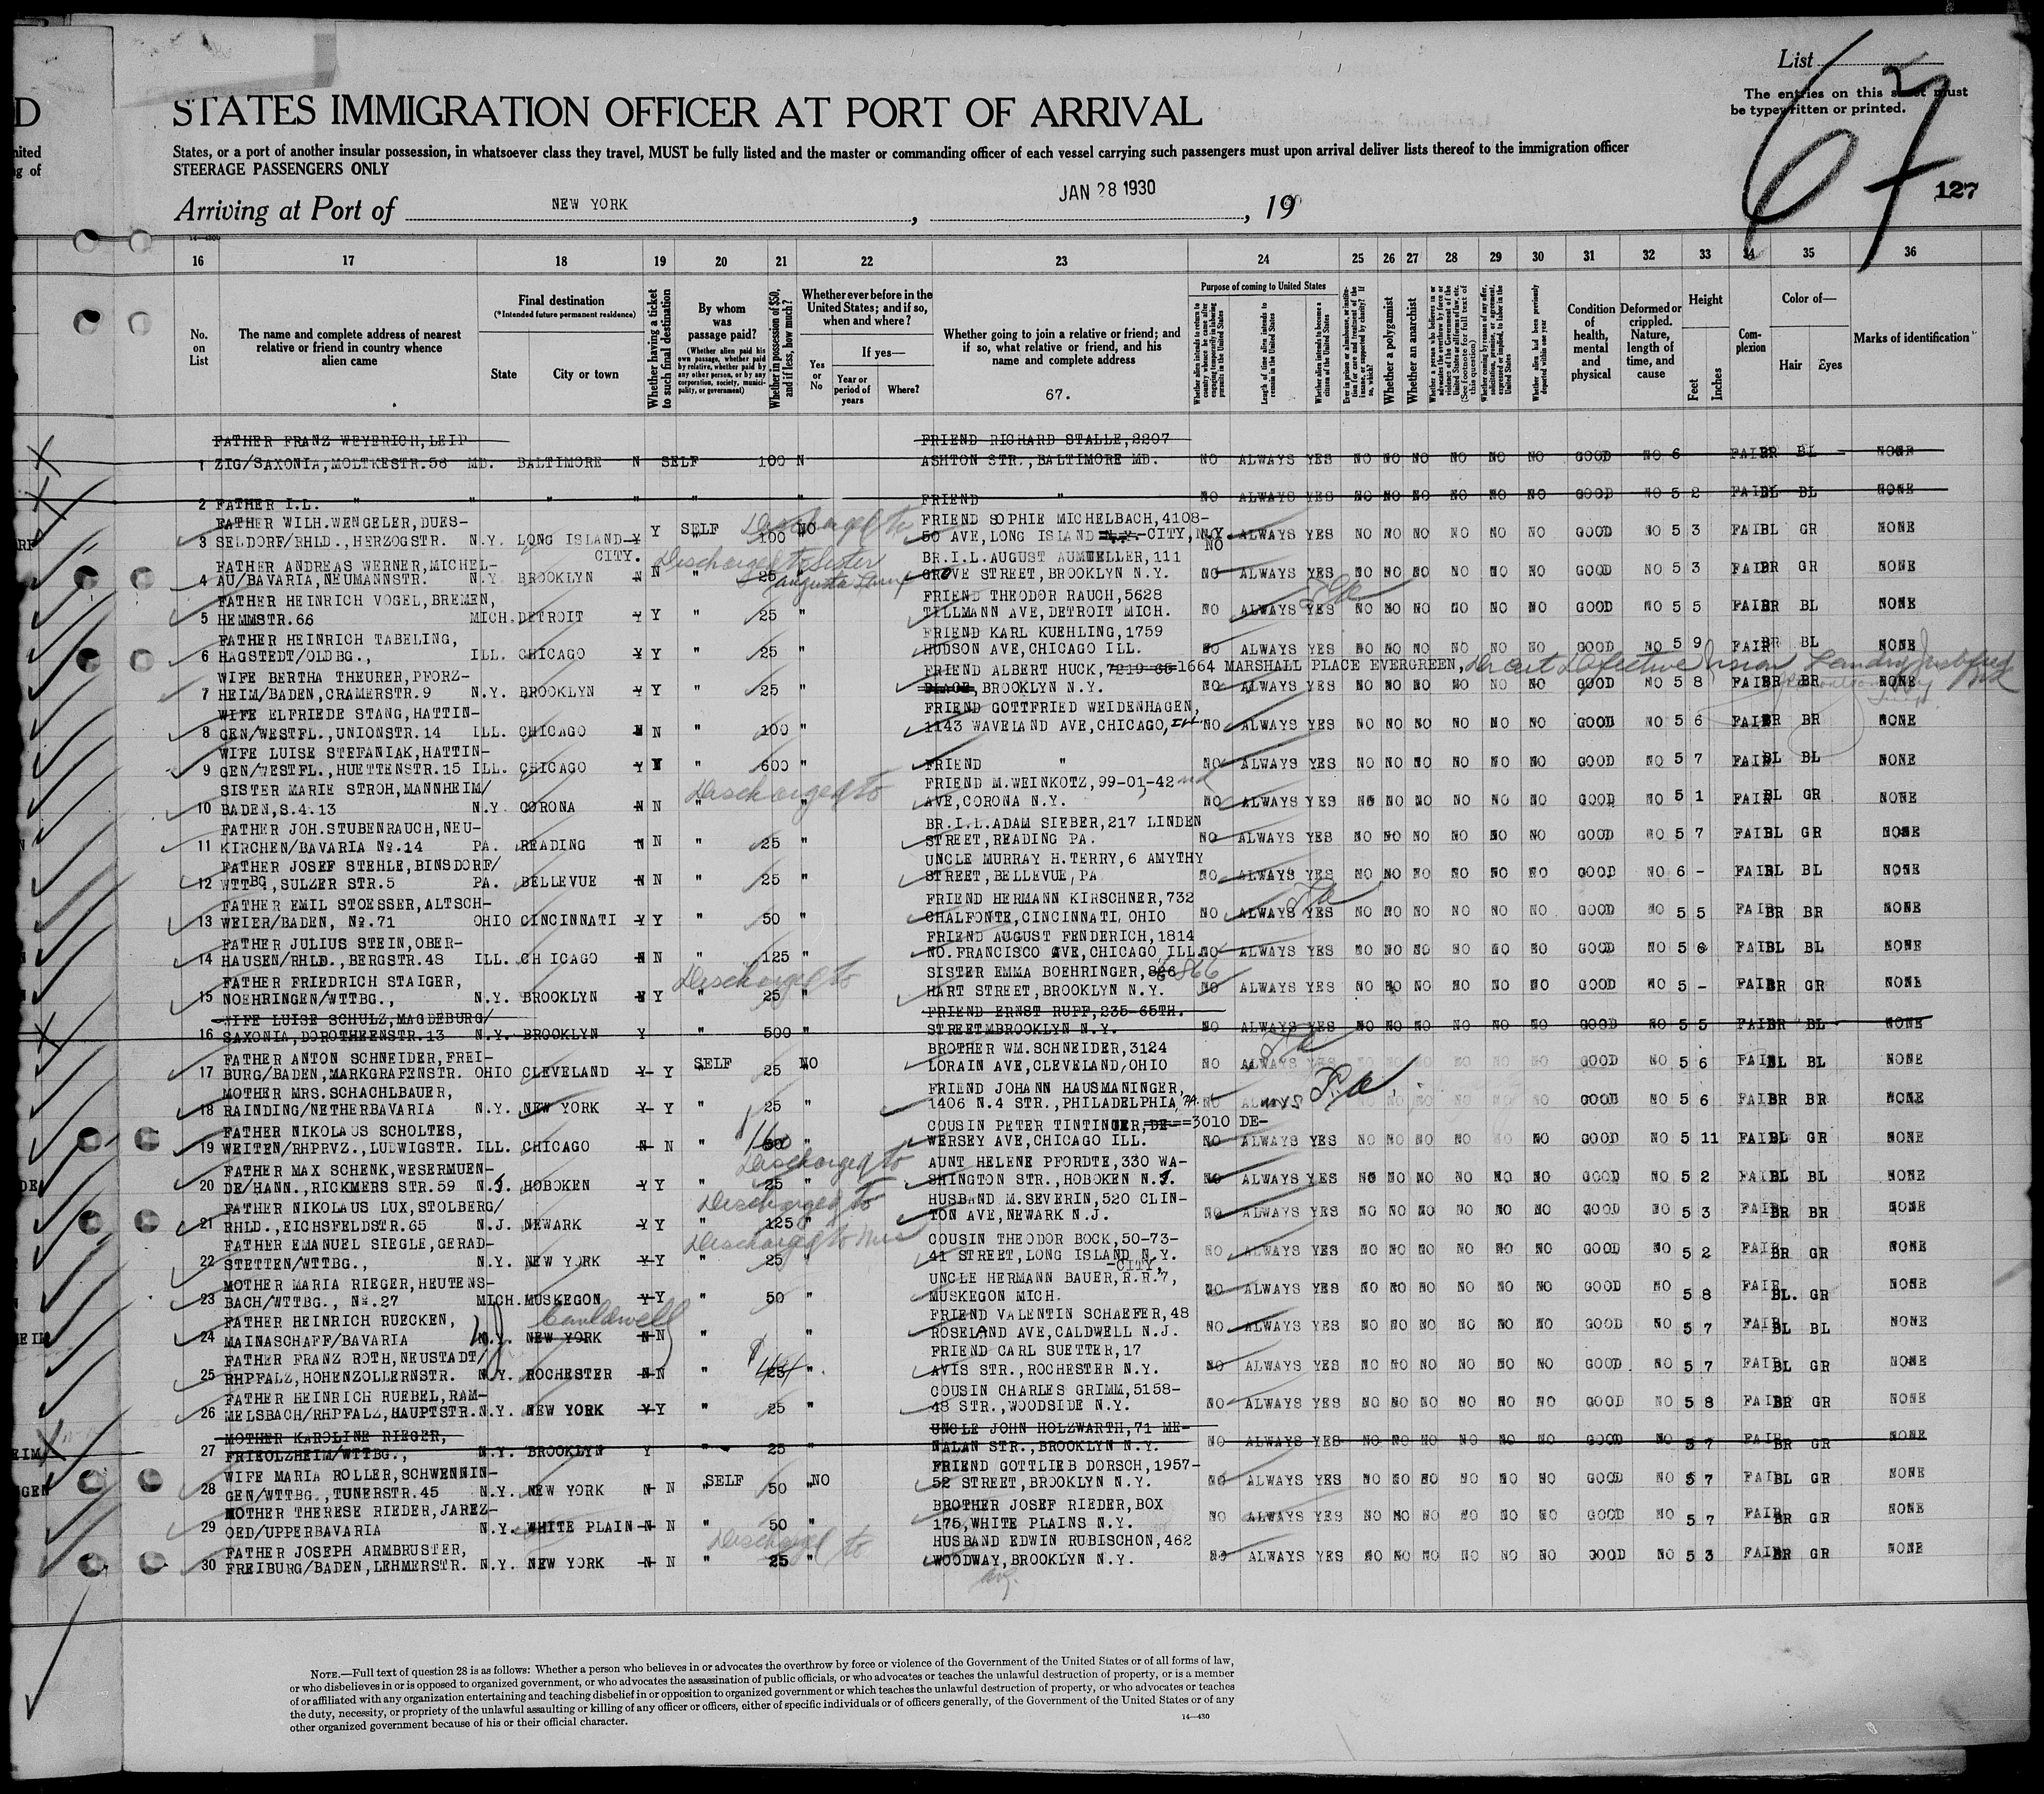 List
67
The entries on this sheet must
be typewritten or printed.
STATES IMMIGRATION OFFICER AT PORT OF ARRIVAL
States, or a port of another insular possession, in whatsoever class they travel, MUST be fully listed and the master or commanding officer of each vessel carrying such passengers must upon arrival deliver lists thereof to the immigration officer
STEERAGE PASSENGERS ONLY
Arriving at Port of NEW YORK , JAN 28 1930 , 19
127
16 17 18 19 20 21 22 23 24 25 26 27 28 29 30 31 32 33 34 35 36
No. on List
The name and complete address of nearest relative or friend in country whence alien came
Final destination (*Intended future permanent residence)
State City or town
Whether having a ticket to such final destination
By whom was passage paid?
(Whether alien paid his own passage, whether paid by relative, whether paid by any other person, or by any corporation, society, municipality, or government)
Whether in possession of $50, and if less, how much?
Whether ever before in the United States; and if so, when and where?
Yes or No
If yes—
Year or period of years
Where?
Whether going to join a relative or friend; and if so, what relative or friend, and his name and complete address
67.
Purpose of coming to United States
Length of time alien intends to remain in the United States
Whether alien intends to become a citizen of the United States
Whether a polygamist
Whether an anarchist
Whether alien had been previously deported within one year
Condition of health, mental and physical
Deformed or crippled. Nature, length of time, and cause
Height
Feet Inches
Complexion
Color of—
Hair Eyes
Marks of identification
FATHER FRANZ WEYERICH,LEIP- FRIEND RICHARD STALLE,2207
1 ZIG/SAXONIA,MOLTKESTR.56 MD. BALTIMORE N SELF 100 N ASHTON STR.,BALTIMORE MD. NO ALWAYS YES NO NO NO NO NO NO GOOD NO 6 FAIR BR BL NONE
2 FATHER I.L. " " " " " " FRIEND " NO ALWAYS YES NO NO NO NO NO NO GOOD NO 5 2 FAIR BL BL NONE
FATHER WILH.WENGELER,DUES- Discharged to FRIEND SOPHIE MICHELBACH,4108-
3 SELDORF/RHLD.,HERZOGSTR. N.Y. LONG ISLAND Y Y SELF 100 NO 50 AVE,LONG ISLAND N.Y. CITY,N.Y. NO ALWAYS YES NO NO NO NO NO NO GOOD NO 5 3 FAIR BL GR NONE
CITY.
FATHER ANDREAS WERNER,MICHEL- Discharged to Sister BR.I.L.AUGUST AUMUELLER,111
4 AU/BAVARIA,NEUMANNSTR. N.Y. BROOKLYN N N " 25 GROVE STREET,BROOKLYN N.Y. NO ALWAYS YES NO NO NO NO NO NO GOOD NO 5 3 FAIR BR GR NONE
FATHER HEINRICH VOGEL,BREMEN, FRIEND THEODOR RAUCH,5628
5 HEMMSTR.66 MICH.DETROIT Y Y " 25 " TILLMANN AVE,DETROIT MICH. NO ALWAYS YES NO NO NO NO NO NO GOOD NO 5 5 FAIR BR BL NONE
FATHER HEINRICH TABELING, FRIEND KARL KUEHLING,1759
6 HAGSTEDT/OLDBG., ILL. CHICAGO Y Y " 25 " HUDSON AVE,CHICAGO ILL. NO ALWAYS YES NO NO NO NO NO NO GOOD NO 5 9 FAIR BR BL NONE
WIFE BERTHA THEURER,PFORZ- FRIEND ALBERT HUCK,7219-66 1664 MARSHALL PLACE EVERGREEN, Defective Vision
7 HEIM/BADEN,CRAMERSTR.9 N.Y. BROOKLYN Y Y " 25 " PLACE,BROOKLYN N.Y. NO ALWAYS YES NO NO NO NO NO NO GOOD NO 5 8 FAIR BR BR NONE
WIFE ELFRIEDE STANG,HATTIN- FRIEND GOTTFRIED WEIDENHAGEN,
8 GEN/WESTFL.,UNIONSTR.14 ILL. CHICAGO N N " 100 " 1143 WAVELAND AVE,CHICAGO,Ill NO ALWAYS YES NO NO NO NO NO NO GOOD NO 5 6 FAIR BR BR NONE
WIFE LUISE STEFANIAK,HATTIN-
9 GEN/WESTFL.,HUETTENSTR.15 ILL. CHICAGO Y Y " 600 " FRIEND " NO ALWAYS YES NO NO NO NO NO NO GOOD NO 5 7 FAIR BL BL NONE
SISTER MARIE STROH,MANNHEIM/ Discharged to FRIEND M.WEINKOTZ,99-01-42nd
10 BADEN,S.4.13 N.Y CORONA N N " " AVE,CORONA N.Y. NO ALWAYS YES NO NO NO NO NO NO GOOD NO 5 1 FAIR BL GR NONE
FATHER JOH.STUBENRAUCH,NEU- BR.I.L.ADAM SIEBER,217 LINDEN
11 KIRCHEN/BAVARIA No.14 PA. READING N N " 25 " STREET,READING PA. NO ALWAYS YES NO NO NO NO NO NO GOOD NO 5 7 FAIR BL GR NONE
FATHER JOSEF STEHLE,BINSDORF/ UNCLE MURRAY H.TERRY,6 AMYTHY
12 WTTBG.,SULZER STR.5 PA. BELLEVUE N N " 25 " STREET,BELLEVUE,PA NO ALWAYS YES NO NO NO NO NO NO GOOD NO 6 - FAIR BL BL NONE
FATHER EMIL STOESSER,ALTSCH- FRIEND HERMANN KIRSCHNER,732
13 WEIER/BADEN, No.71 OHIO CINCINNATI Y Y " 50 " CHALFONTE,CINCINNATI,OHIO NO ALWAYS YES NO NO NO NO NO NO GOOD NO 5 5 FAIR BR BR NONE
FATHER JULIUS STEIN,OBER- FRIEND AUGUST FENDERICH,1814
14 HAUSEN/RHLD.,BERGSTR.48 ILL. CHICAGO N N " 125 " NO.FRANCISCO AVE,CHICAGO ILL. NO ALWAYS YES NO NO NO NO NO NO GOOD NO 5 6 FAIR BL BL NONE
FATHER FRIEDRICH STAIGER, Discharged to SISTER EMMA BOEHRINGER,866 866
15 NOEHRINGEN/WTTBG., N.Y. BROOKLYN N Y " 25 " HART STREET,BROOKLYN N.Y. NO ALWAYS YES NO NO NO NO NO NO GOOD NO 5 - FAIR BR GR NONE
WIFE LUISE SCHULZ,MAGDEBURG/ FRIEND ERNST RUFF,235-65TH.
16 SAXONIA,DOROTHEENSTR.13 N.Y. BROOKLYN Y " 500 " STREETMBROOKLYN N.Y. NO ALWAYS YES NO NO NO NO NO NO GOOD NO 5 5 FAIR BR BL NONE
FATHER ANTON SCHNEIDER,FREI- BROTHER WM.SCHNEIDER,3124
17 BURG/BADEN,MARKGRAFENSTR. OHIO CLEVELAND Y Y SELF 25 NO LORAIN AVE,CLEVELAND,OHIO NO ALWAYS YES NO NO NO NO NO NO GOOD NO 5 6 FAIR BL BL NONE
MOTHER MRS.SCHACHLBAUER, FRIEND JOHANN HAUSMANINGER,
18 RAINDING/NETHERBAVARIA N.Y. NEW YORK Y Y " 25 " 1406 N.4 STR.,PHILADELPHIA,PA. NO ALWAYS NO NO NO NO NO NO GOOD NO 5 6 FAIR BR BR NONE
FATHER NIKOLAUS SCHOLTES, COUSIN PETER TINTINGER,DE-=3010 DE-
19 WEITEN/RHPRVZ.,LUDWIGSTR. ILL. CHICAGO N N " " WERSEY AVE,CHICAGO ILL. NO ALWAYS YES NO NO NO NO NO NO GOOD NO 5 11 FAIR BL GR NONE
FATHER MAX SCHENK,WESERMUEN- Discharged to AUNT HELENE PFORDTE,330 WA-
20 DE/HANN.,RICKMERS STR.59 N.J. HOBOKEN Y Y " 25 " SHINGTON STR.,HOBOKEN N.J. NO ALWAYS YES NO NO NO NO NO NO GOOD NO 5 2 FAIR BL BL NONE
FATHER NIKOLAUS LUX,STOLBERG/ Discharged to HUSBAND M.SEVERIN,520 CLIN-
21 RHLD.,EICHSFELDSTR.65 N.J. NEWARK Y Y " 125 " TON AVE,NEWARK N.J. NO ALWAYS YES NO NO NO NO NO NO GOOD NO 5 3 FAIR BR BR NONE
FATHER EMANUEL SIEGLE,GERAD- Discharged to COUSIN THEODOR BOCK,50-73-
22 STETTEN/WTTBG., N.Y. NEW YORK Y Y " 25 " 41 STREET,LONG ISLAND N.Y. NO ALWAYS YES NO NO NO NO NO NO GOOD NO 5 2 FAIR BR GR NONE
-CITY,
MOTHER MARIA RIEGER,HEUTENS- UNCLE HERMANN BAUER,R.R.7,
23 BACH/WTTBG., No.27 MICH.MUSKEGON Y Y " 50 " MUSKEGON MICH. NO ALWAYS YES NO NO NO NO NO NO GOOD NO 5 8 FAIR BL. GR NONE
FATHER HEINRICH RUECKEN, Cauldwell FRIEND VALENTIN SCHAEFER,48
24 MAINASCHAFF/BAVARIA N.Y. NEW YORK N N " " ROSELAND AVE,CALDWELL N.J. NO ALWAYS YES NO NO NO NO NO NO GOOD NO 5 7 FAIR BL BL NONE
FATHER FRANZ ROTH,NEUSTADT/ FRIEND CARL SUETTER,17
25 RHPFALZ,HOHENZOLLERNSTR. N.Y. ROCHESTER N N " 25 " AVIS STR.,ROCHESTER N.Y. NO ALWAYS YES NO NO NO NO NO NO GOOD NO 5 7 FAIR BL GR NONE
FATHER HEINRICH RUEBEL,RAM- COUSIN CHARLES GRIMM,5158-
26 MELSBACH/RHPFALZ,HAUPTSTR. N.Y. NEW YORK Y Y " 25 " 48 STR.,WOODSIDE N.Y. NO ALWAYS YES NO NO NO NO NO NO GOOD NO 5 8 FAIR BR GR NONE
MOTHER KAROLINE RIEGER, UNCLE JOHN HOLZWARTH,71 ME-
27 FRIEOLZHEIM/WTTBG., N.Y. BROOKLYN Y " 25 " NALAN STR.,BROOKLYN N.Y. NO ALWAYS YES NO NO NO NO NO NO GOOD NO 5 7 FAIR BR GR NONE
WIFE MARIA ROLLER,SCHWENNIN- FRIEND GOTTLIEB DORSCH,1957-
28 GEN/WTTBG.,TUNERSTR.45 N.Y. NEW YORK N N SELF 50 NO 52 STREET,BROOKLYN N.Y. NO ALWAYS YES NO NO NO NO NO NO GOOD NO 5 7 FAIR BL GR NONE
MOTHER THERESE RIEDER,JAREZ- BROTHER JOSEF RIEDER,BOX
29 OED/UPPERBAVARIA N.Y. WHITE PLAIN N N " 50 " 175,WHITE PLAINS N.Y. NO ALWAYS YES NO NO NO NO NO NO GOOD NO 5 7 FAIR BR GR NONE
FATHER JOSEPH ARMBRUSTER, Discharged to HUSBAND EDWIN RUBISCHON,462
30 FREIBURG/BADEN,LEHMERSTR. N.Y. NEW YORK N N " 25 " WOODWAY,BROOKLYN N.Y. NO ALWAYS YES NO NO NO NO NO NO GOOD NO 5 3 FAIR BR GR NONE
NOTE.—Full text of question 28 is as follows: Whether a person who believes in or advocates the overthrow by force or violence of the Government of the United States or of all forms of law,
or who disbelieves in or is opposed to organized government, or who advocates the assassination of public officials, or who advocates or teaches the unlawful destruction of property, or is a member
of or affiliated with any organization entertaining and teaching disbelief in or opposition to organized government or which teaches the unlawful destruction of property, or who advocates or teaches
the duty, necessity, or propriety of the unlawful assaulting or killing of any officer or officers, either of specific individuals or of officers generally, of the Government of the United States or of any
other organized government because of his or their official character.
14—430